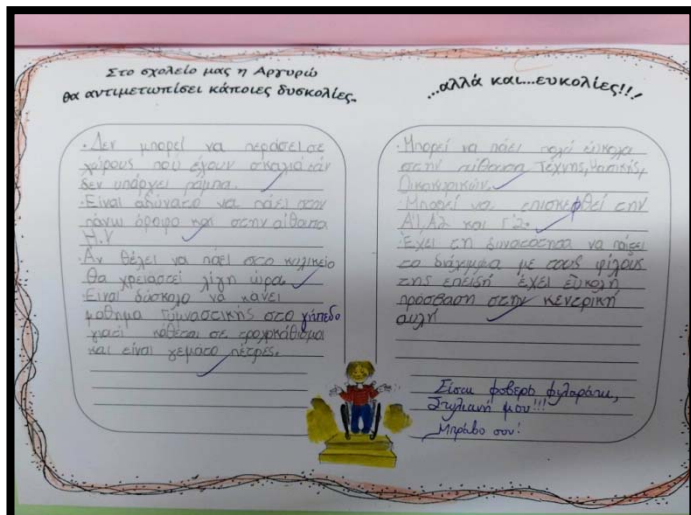 Στο σχολείο μας η Αργυρώ
θα αντιμετωπίσει κάποιες δυσκολίες.
• Δεν μπορεί να περάσει σε
χώρους πού έχουν σκαλιά εάν
δεν υπάρχει ράμπα.
• Είναι αδύνατο να πάει στην
πάνω όροφο και στην αίθουσα
Η.Υ
• Αν θέλει να πάει στο κυλικείο
θα χρειαστεί λίγη ώρα.
• Είναι δύσκολο να κάνει
μάθημα Γυμναστικής στο γήπεδο
γιατί κάθεται σε τροχοκάθισμα
και είναι γεμάτο πέτρες.
...αλλά και...ευκολίες!!!
• Μπορεί να πάει πολύ εύκολα
στην αίθουσα Τέχνης, Μουσικής,
Οικοκυρικών.
• Μπορεί να επισκεφθεί την
Α'1, Α2 και Γ'2.
• Έχει τη δυνατότητα να παίζει
το διάλειμμα με τους φίλους
της επειδή έχει εύκολη
πρόσβαση στην κεντρική
αυλή
Είσαι φοβερό φιλαράκι,
Στυλιανή μου!!!
Μπράβο σου!